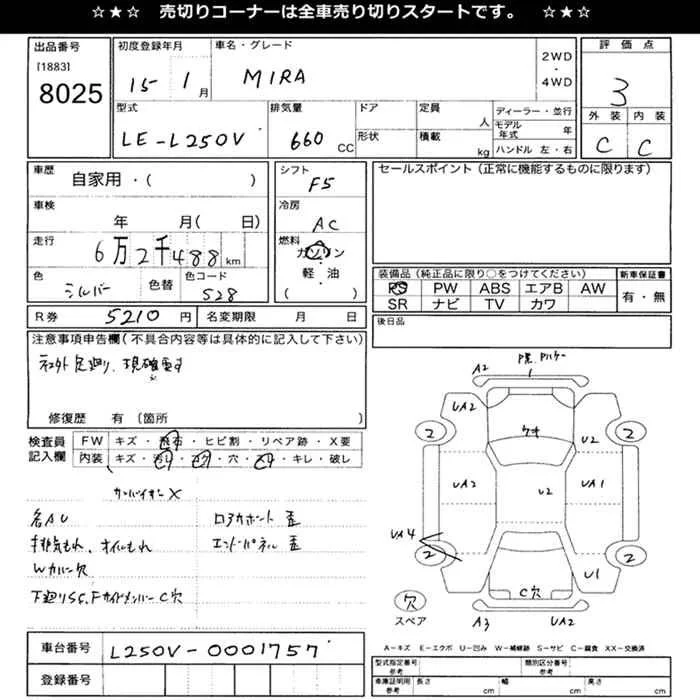 ☆★☆ 売切りコーナーは全車売り切りスタートです。 ☆★☆
出品番号 初度登録年月 車名・グレード 2WD・4WD 評価点
[1883]
8025 15 1月 MIRA 3
型式 排気量 ドア 定員 人 ディーラー・並行 外装 内装
LE-L250V 660 CC 形状 積載 kg モデル年式 年 C C
ハンドル 左・右
車歴 自家用・( ) シフト F5 セールスポイント(正常に機能するものに限ります)
車検 年 月( 日) 冷房 AC
走行 6万2千488km 燃料 ガソリン・軽油 ( )
色 シルバー 色替 色コード S28
装備品(純品に限り○をつけてください) 新車保証書
PS PW ABS エアB AW 有・無
SR ナビ TV カワ
R券 5210円 名変期限 月 日 後日品
注意事項申告欄(不具合内容等は具体的に記入して下さい)
修復歴 有 〔箇所
検査員記入欄 FW キズ・飛石・ヒビ割・リペア跡・X要
内装 キズ・汚レ・コゲ・穴・スレ・キレ・破レ
X
各AU
排気もれ、オイルもれ
Wカバー欠
下廻りSC,FサイドメンバーC穴
ロアカポート歪
エンドパネル歪
A2 1
UA2 UA2
2 2
ウオ U2
UA2 U2 UA1
UA4
2 2
U1
欠 C穴
スペア A3 UA2
A-キズ E-エクボ U-凹み W-補修跡 S-サビ C-腐食 XX-交換済
車台番号 L250V-0001757
登録番号
型式指定番号 参考 類別区分番号 参考
車庫証明用 参考 長さ cm 幅 cm 高さ cm